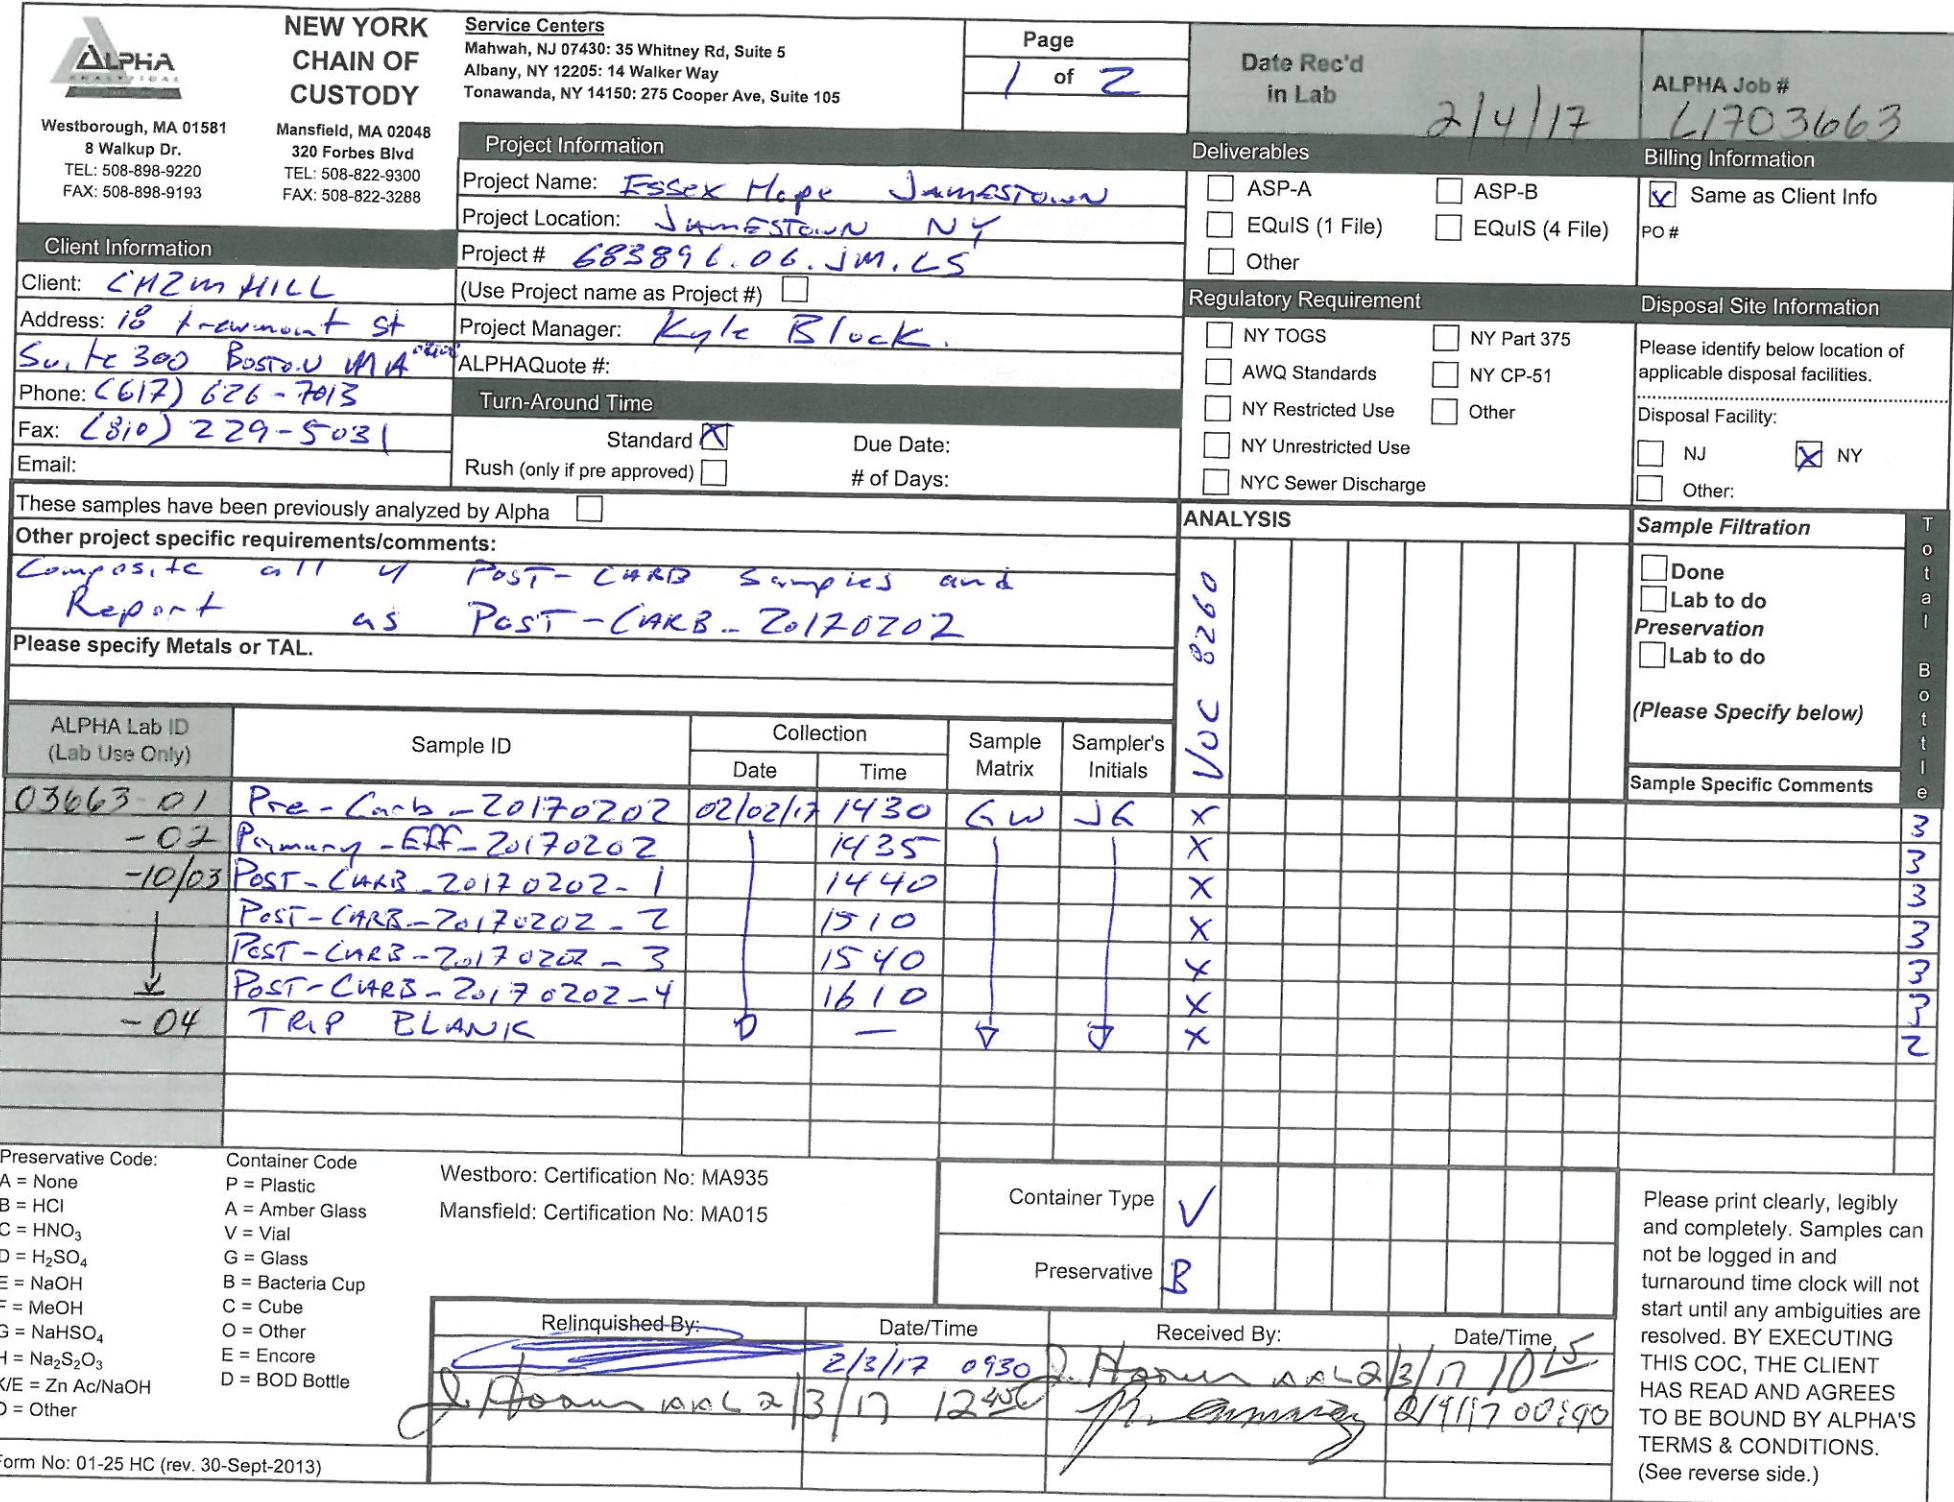 ALPHA
ANALYTICAL
Westborough, MA 01581
8 Walkup Dr.
TEL: 508-898-9220
FAX: 508-898-9193
NEW YORK
CHAIN OF
CUSTODY
Mansfield, MA 02048
320 Forbes Blvd
TEL: 508-822-9300
FAX: 508-822-3288
Service Centers
Mahwah, NJ 07430: 35 Whitney Rd, Suite 5
Albany, NY 12205: 14 Walker Way
Tonawanda, NY 14150: 275 Cooper Ave, Suite 105
Page
1 of 2
Date Rec'd
in Lab
2/4/17
ALPHA Job #
L1703663
Client Information
Client: CH2M HILL
Address: 18 Tremont St
Suite 300 Boston MA
Phone: (617) 626-7013
Fax: (810) 229-5031
Email:
Project Information
Project Name: Essex Hope Jamestown
Project Location: Jamestown NY
Project # 683896.06.JM.CS
(Use Project name as Project #)
Project Manager: Kyle Block.
ALPHAQuote #:
Turn-Around Time
Standard X Due Date:
Rush (only if pre approved) # of Days:
Deliverables
ASP-A ASP-B
EQuIS (1 File) EQuIS (4 File)
Other
Regulatory Requirement
NY TOGS NY Part 375
AWQ Standards NY CP-51
NY Restricted Use Other
NY Unrestricted Use
NYC Sewer Discharge
Billing Information
Same as Client Info
PO #
Disposal Site Information
Please identify below location of
applicable disposal facilities.
Disposal Facility:
NJ X NY
Other:
These samples have been previously analyzed by Alpha
Other project specific requirements/comments:
Composite all 4 Post-CARB Samples and
Report as Post-CARB-20170202
Please specify Metals or TAL.
ANALYSIS
VOC 8260
Sample Filtration
Done
Lab to do
Preservation
Lab to do
(Please Specify below)
Total Bottle
ALPHA Lab ID
(Lab Use Only)
Sample ID
Collection
Date Time
Sample
Matrix
Sampler's
Initials
Sample Specific Comments
03663-01 Pre-Carb-20170202 02/02/17 1430 GW JG X 3
-02 Primary-Eff-20170202 1435 X 3
-10/03 Post-CARB-20170202-1 1440 X 3
Post-CARB-20170202-2 1510 X 3
Post-CARB-20170202-3 1540 X 3
Post-CARB-20170202-4 1610 X 3
-04 TRIP BLANK — X 2
Preservative Code:
A = None
B = HCl
C = HNO3
D = H2SO4
E = NaOH
F = MeOH
G = NaHSO4
H = Na2S2O3
K/E = Zn Ac/NaOH
O = Other
Container Code
P = Plastic
A = Amber Glass
V = Vial
G = Glass
B = Bacteria Cup
C = Cube
O = Other
E = Encore
D = BOD Bottle
Westboro: Certification No: MA935
Mansfield: Certification No: MA015
Container Type V
Preservative B
Relinquished By: Date/Time Received By: Date/Time
2/3/17 0930 2/3/17 1015
2/3/17 2/4/17 00:40
Please print clearly, legibly
and completely. Samples can
not be logged in and
turnaround time clock will not
start until any ambiguities are
resolved. BY EXECUTING
THIS COC, THE CLIENT
HAS READ AND AGREES
TO BE BOUND BY ALPHA'S
TERMS & CONDITIONS.
(See reverse side.)
Form No: 01-25 HC (rev. 30-Sept-2013)